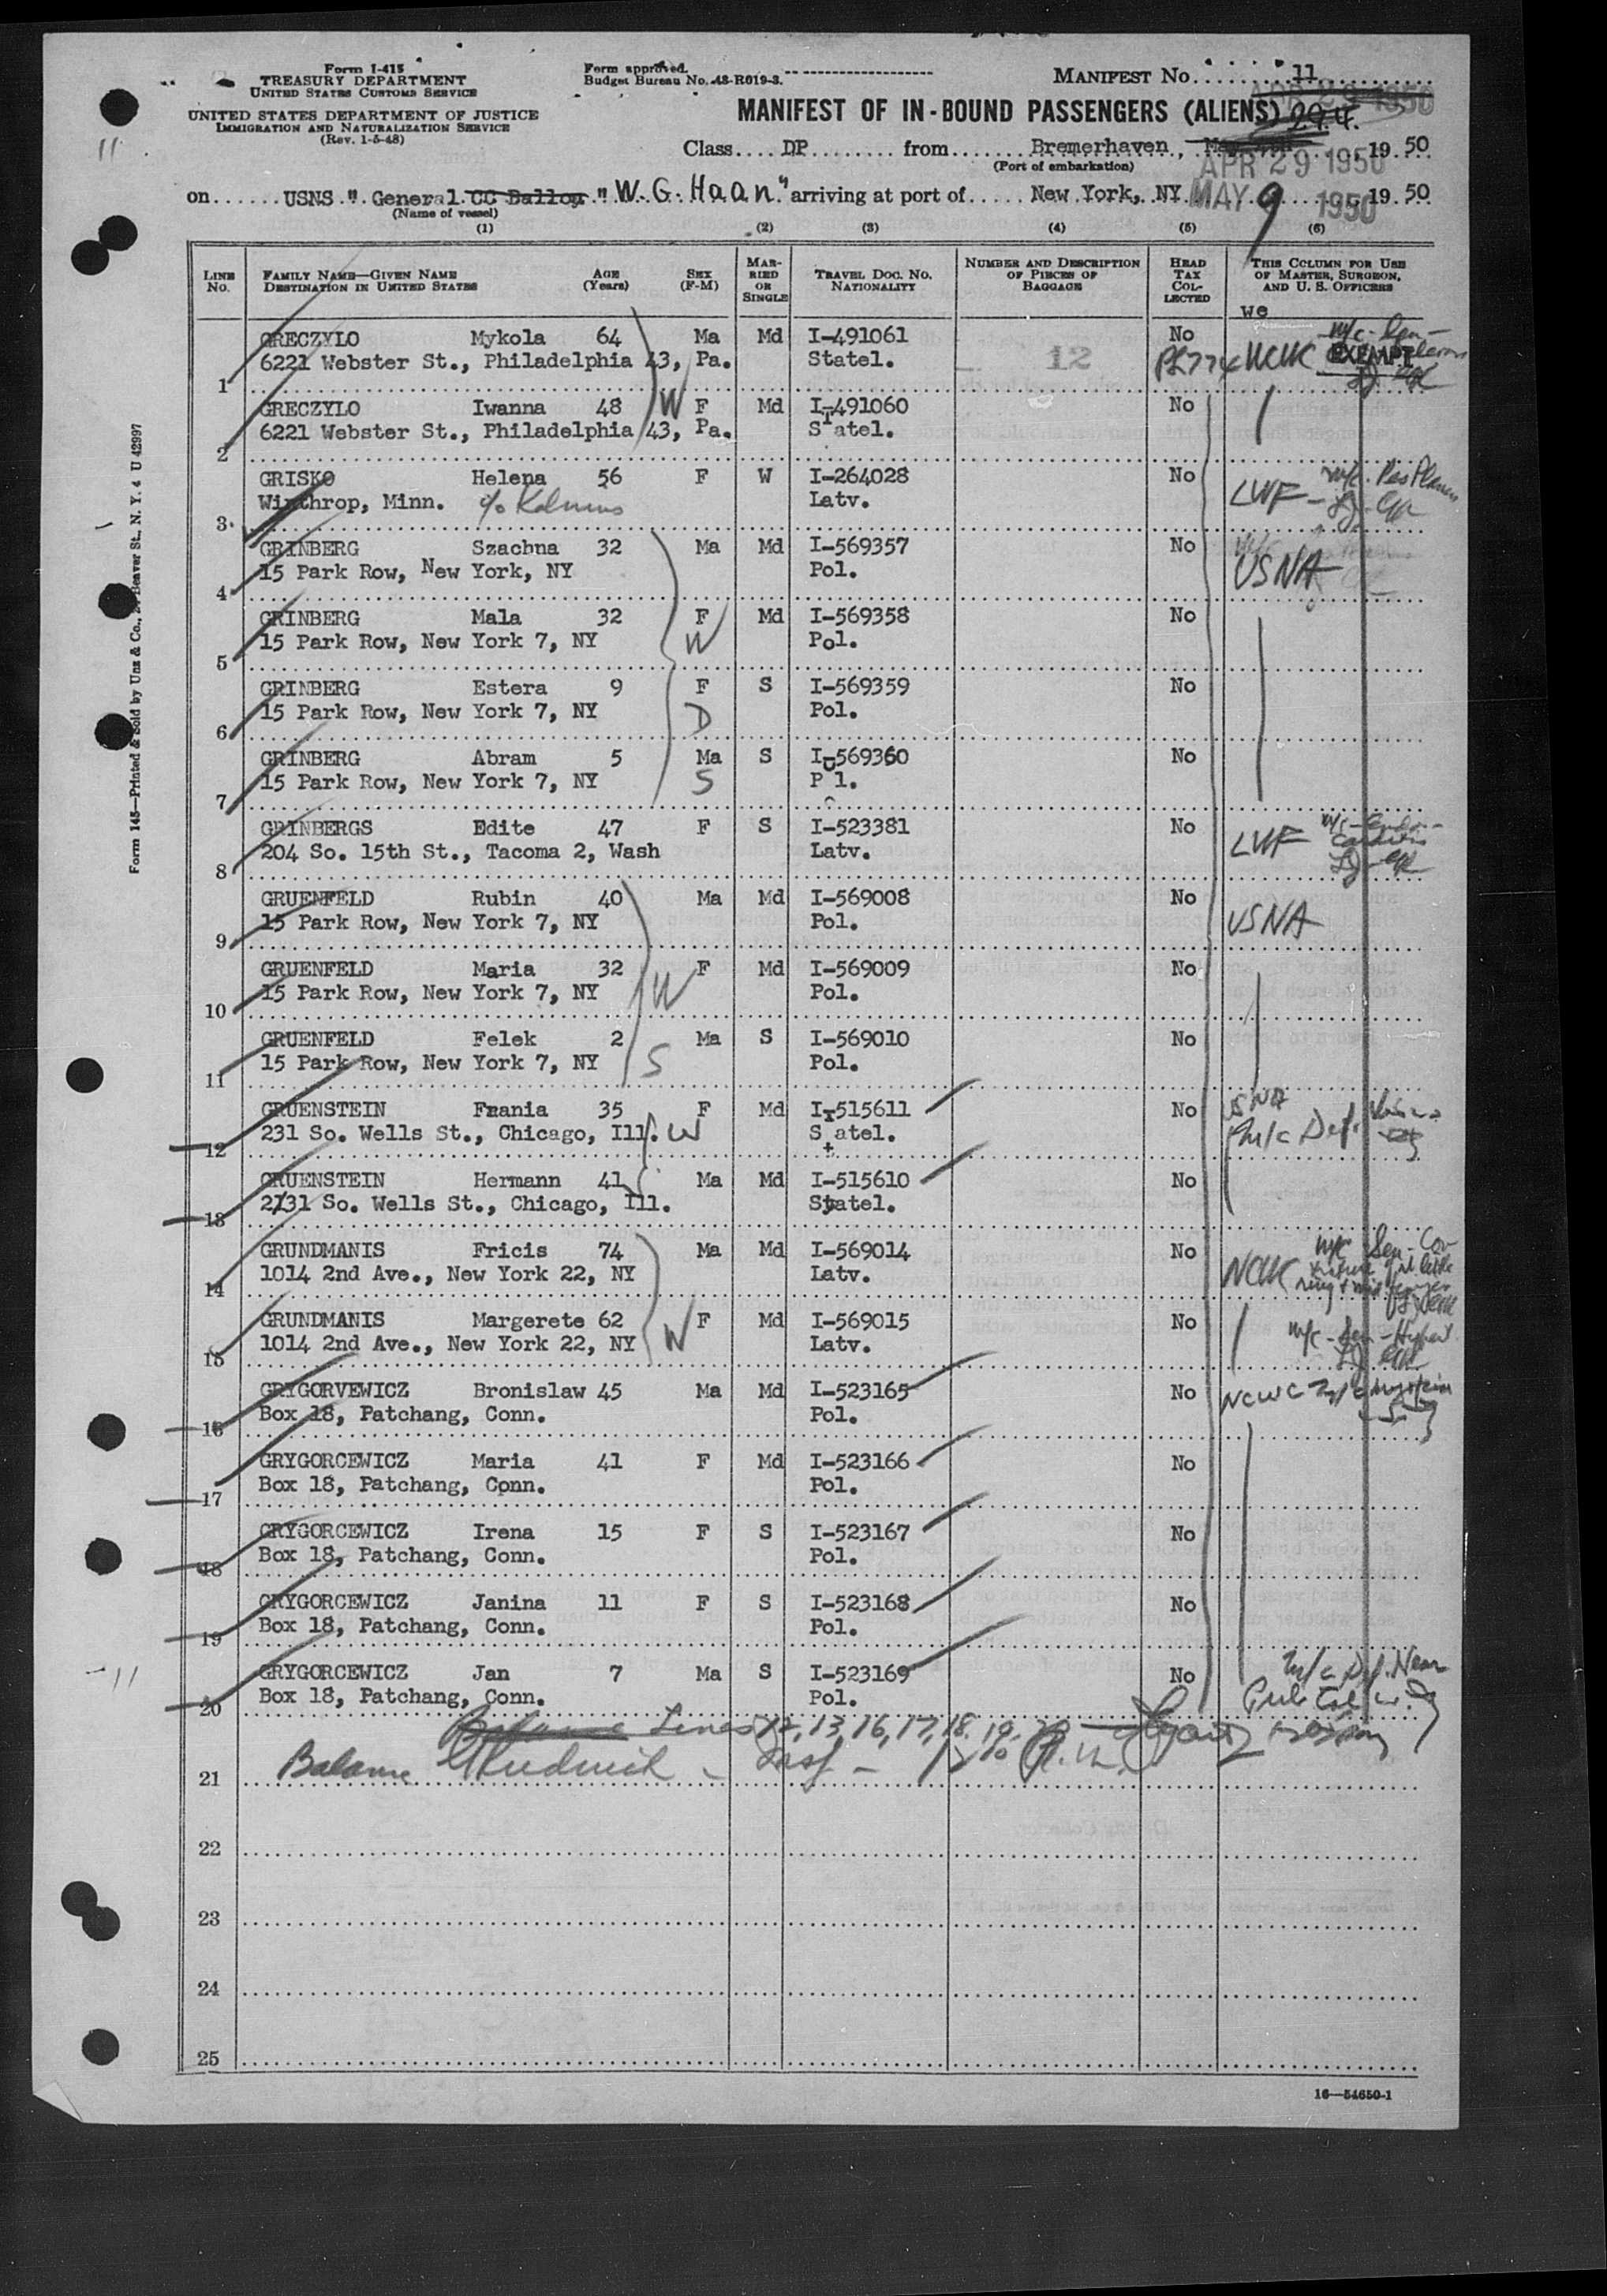 Form I-415
TREASURY DEPARTMENT
UNITED STATES CUSTOMS SERVICE
UNITED STATES DEPARTMENT OF JUSTICE
IMMIGRATION AND NATURALIZATION SERVICE
(Rev. 1-5-48)
Form approved.
Budget Bureau No. 43-R019-3.
MANIFEST No. 11
MANIFEST OF IN-BOUND PASSENGERS (ALIENS) 294.
Class DP from Bremerhaven, APR 29 1950, 19 50
(Port of embarkation)
on USNS "General CC Ballou" W. G. Haan" arriving at port of New York, NY MAY 9 1950 19 50
(Name of vessel)
(1) (2) (3) (4) (5) (6)
LINE No. FAMILY NAME—GIVEN NAME DESTINATION IN UNITED STATES AGE (Years) SEX (F-M) MARRIED OR SINGLE TRAVEL DOC. NO. NATIONALITY NUMBER AND DESCRIPTION OF PIECES OF BAGGAGE HEAD TAX COLLECTED THIS COLUMN FOR USE OF MASTER, SURGEON, AND U. S. OFFICERS
we
GRECZYLO Mykola 64 Ma Md I-491061 No EXEMPT
1 6221 Webster St., Philadelphia 43, Pa. Statel. 12
GRECZYLO Iwanna 48 W F Md I-491060 No
2 6221 Webster St., Philadelphia 43, Pa. Statel.
GRISKO Helena 56 F W I-264028 No
3 Winthrop, Minn. c/o Kalnins Latv. LWF
GRINBERG Szachna 32 Ma Md I-569357 No
4 15 Park Row, New York, NY Pol. USNA
GRINBERG Mala 32 F Md I-569358 No
5 15 Park Row, New York 7, NY W Pol.
GRINBERG Estera 9 F S I-569359 No
6 15 Park Row, New York 7, NY D Pol.
GRINBERG Abram 5 Ma S I-569360 No
7 15 Park Row, New York 7, NY S Pol.
GRINBERGS Edite 47 F S I-523381 No
8 204 So. 15th St., Tacoma 2, Wash Latv. LWF
GRUENFELD Rubin 40 Ma Md I-569008 No
9 15 Park Row, New York 7, NY Pol. USNA
GRUENFELD Maria 32 F Md I-569009 No
10 15 Park Row, New York 7, NY W Pol.
GRUENFELD Felek 2 Ma S I-569010 No
11 15 Park Row, New York 7, NY S Pol.
GRUENSTEIN Frania 35 F Md I-515611 No USNA
12 231 So. Wells St., Chicago, Ill. W Statel. m/c Def.
GRUENSTEIN Hermann 41 Ma Md I-515610 No
13 231 So. Wells St., Chicago, Ill. Statel.
GRUNDMANIS Fricis 74 Ma Md I-569014 No
14 1014 2nd Ave., New York 22, NY Latv.
GRUNDMANIS Margerete 62 F Md I-569015 No
15 1014 2nd Ave., New York 22, NY W Latv.
GRYGORVEWICZ Bronislaw 45 Ma Md I-523165 No NCWC
16 Box 18, Patchang, Conn. Pol.
GRYGORCEWICZ Maria 41 F Md I-523166 No
17 Box 18, Patchang, Conn. Pol.
GRYGORCEWICZ Irena 15 F S I-523167 No
18 Box 18, Patchang, Conn. Pol.
GRYGORCEWICZ Janina 11 F S I-523168 No
19 Box 18, Patchang, Conn. Pol.
GRYGORCEWICZ Jan 7 Ma S I-523169 No
20 Box 18, Patchang, Conn. Pol.
Lines 12, 13, 16, 17, 18, 19, 20
21 Balance
22
23
24
25
16—54650-1
Form 145—Printed & Sold by Unz & Co., Beaver St., N. Y. 4 U 42997